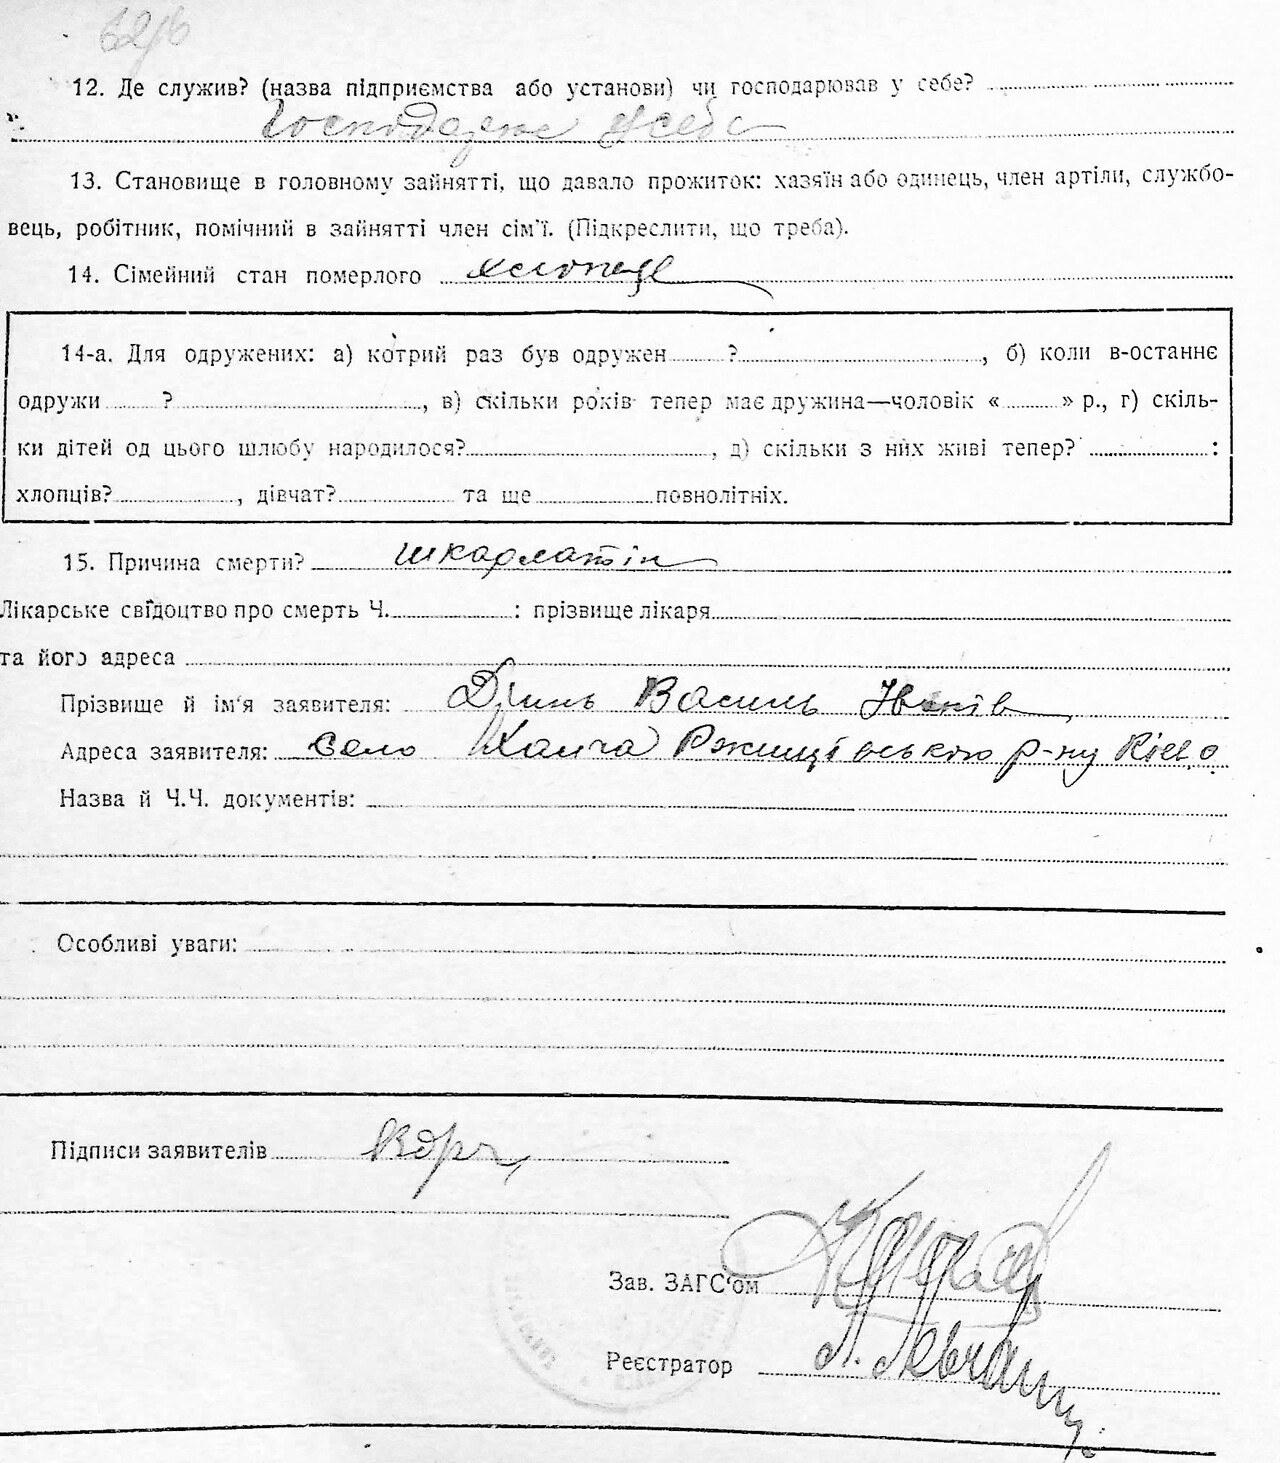 12. Де служив? (назва підприємства або установи) чи господарював у себе?
Господарює у себе
13. Становище в головному зайнятті, що давало прожиток: хазяїн або одинець, член артіли, службо-
вець, робітник, помічний в зайнятті член сім'ї. (Підкреслити, що треба).
14. Сімейний стан померлого хлопець
14-а. Для одружених: а) котрий раз був одружен ? , б) коли в-останнє
одружи ? , в) скільки років тепер має дружина—чоловік « » р., г) скіль-
ки дітей од цього шлюбу народилося? , д) скільки з них живі тепер? :
хлопців? , дівчат? та ще повнолітніх.
15. Причина смерти? шкарлатін
Лікарське свідоцтво про смерть Ч. : прізвище лікаря
та його адреса
Прізвище й ім'я заявителя: Василь
Адреса заявителя: село Ржищівського р-ну Київ.о.
Назва й Ч.Ч. документів:
Особливі уваги:
Підписи заявителів
Зав. ЗАГС'ом
Реєстратор